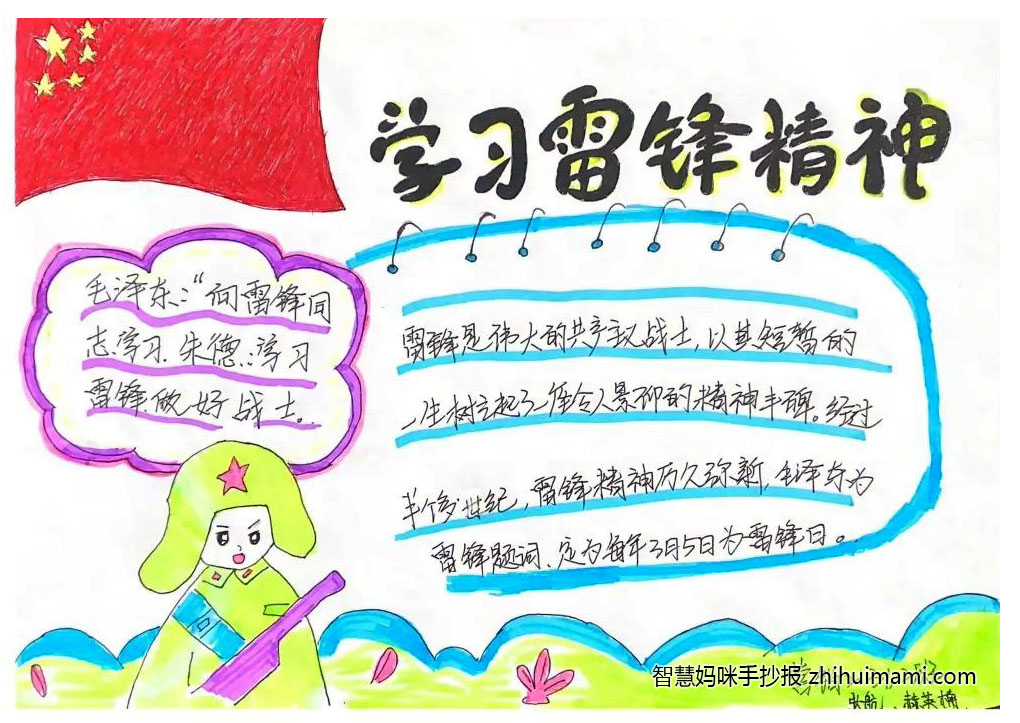 学习雷锋精神
毛泽东:“向雷锋同
志学习.朱德:学习
雷锋.做好战士。
雷锋是伟大的共产主义战士,以其短暂的
一生树立起了一座令人景仰的精神丰碑。经过
半个多世纪,雷锋精神历久弥新,毛泽东为
雷锋题词、定为每年3月5日为雷锋日。
智慧妈咪手抄报 zhihuimami.com